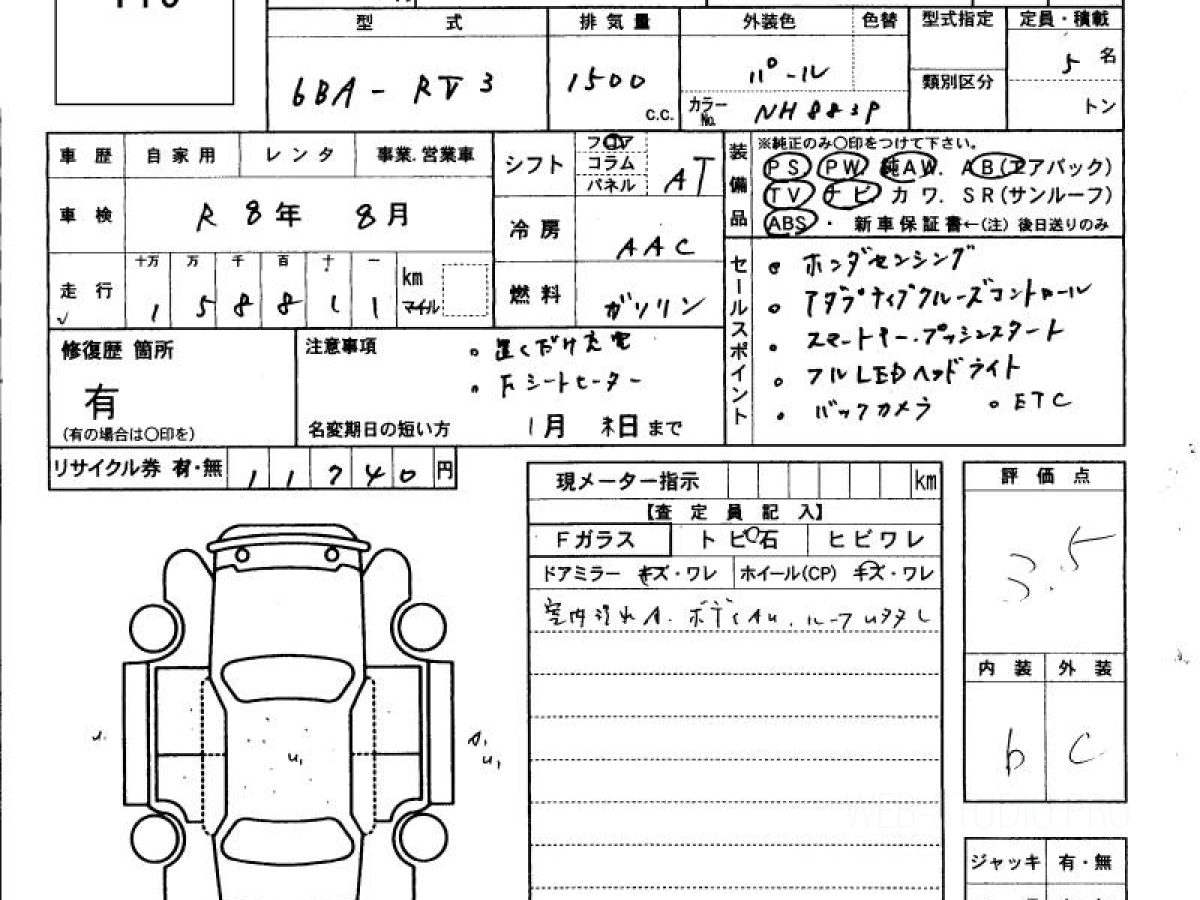 型式 排気量 外装色 色替 型式指定 定員・積載
6BA - RV3 1500 c.c. パール 5名
カラーNo. NH883P 類別区分 トン
車歴 自家用 レンタ 事業.営業車
車検 R 8年 8月
走行 十万 万 千 百 十 一
1 5 8 8 1 1 km マイル
シフト フロア コラム パネル AT
冷房 AAC
燃料 ガソリン
装備品 ※純正のみ〇印をつけて下さい。
PS. PW. 純AW. AB(エアバック)
TV ナビ カワ. SR(サンルーフ)
ABS ・ 新車保証書←(注) 後日送りのみ
セールスポイント
。ホンダセンシング
。アダプティブクルーズコントロール
。スマートキー・プッシュスタート
。フルLEDヘッドライト
。バックカメラ 。ETC
修復歴 箇所
有
(有の場合は〇印を)
注意事項 。置くだけ充電
。Fシートヒーター
名変期日の短い方 1月 末日まで
リサイクル券 有・無 1 1 7 4 0 円
現メーター指示 km
【査定員記入】
Fガラス トビ石 ヒビワレ
ドアミラー キズ・ワレ ホイール(CP) キズ・ワレ
室内汚れA. ボディAu. ルーフuタタし
評価点
3.5
内装 外装
b C
u. u, A, u,
ジャッキ 有・無